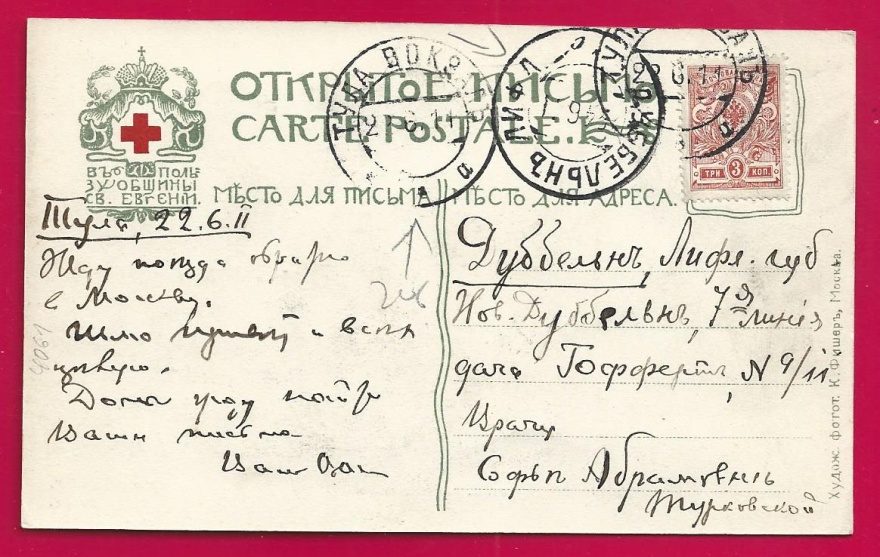 ОТКРЫТОЕ ПИСЬМО
CARTE POSTALE.
ВЪ ПОЛЬ
ЗУ ОБЩИНЫ
СВ. ЕВГЕНIИ.
МѢСТО ДЛЯ ПИСЬМА
МѢСТО ДЛЯ АДРЕСА.
ТУЛА ВОКЗ
ДУББЕЛЬНЪ ЛИФЛ
3
ТРИ КОП.
Тула, 22.6.11
Жду поезда
в Москву.
Шлю привет и всех
целую.
Дома жду
Ваши письма
Ваш
Дуббельнъ, Лифл. губ
Нов. Дуббельнъ, 7я линiя
дача Гофферт, N 9/11
Врачу
Софьи Абрамовнѣ
Турковской
Худож. фотот. К. Фишеръ, Москва.
4061